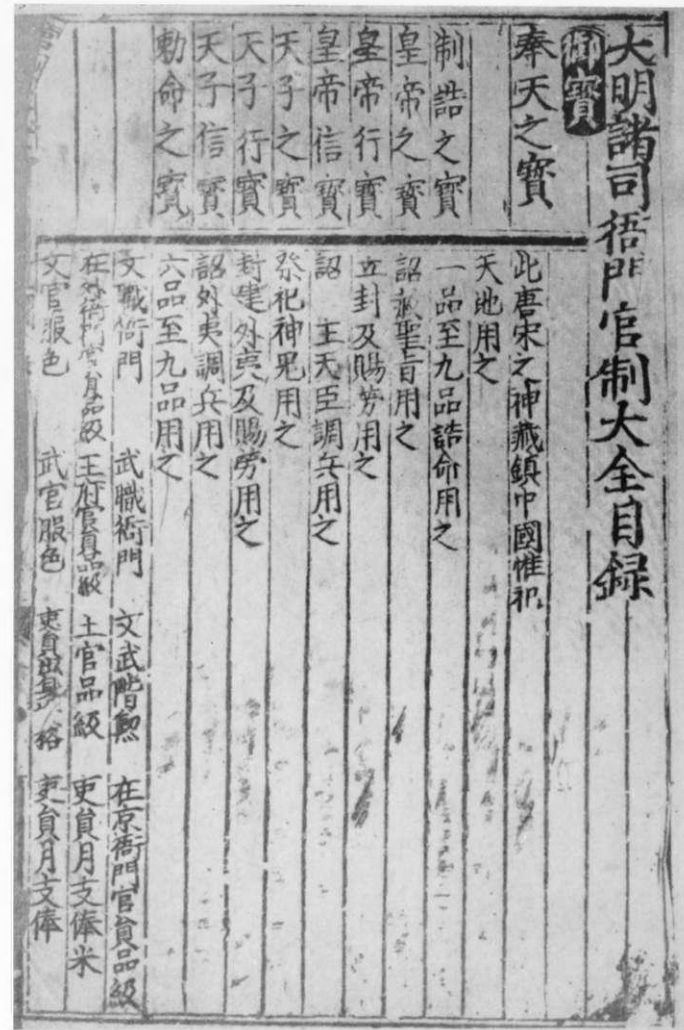 大明諸司衙門官制大全目録
御寶
奉天之寶 此唐宋之神藏鎮中國惟祀
天地用之
制誥之寶 一品至九品誥命用之
皇帝之寶 詔赦聖旨用之
皇帝行寶 立封及賜勞用之
皇帝信寶 詔 王大臣調兵用之
天子之寶 祭祀神鬼用之
天子行寶 封建外夷及賜勞用之
天子信寶 詔外夷調兵用之
勅命之寶 六品至九品用之
文職衙門 武職衙門 文武階勲 在京衙門官員品級
在外衙門官員品級 王府官員品級 土官品級 吏員月支俸米
文官服色 武官服色 吏員出身 格 吏員月支俸